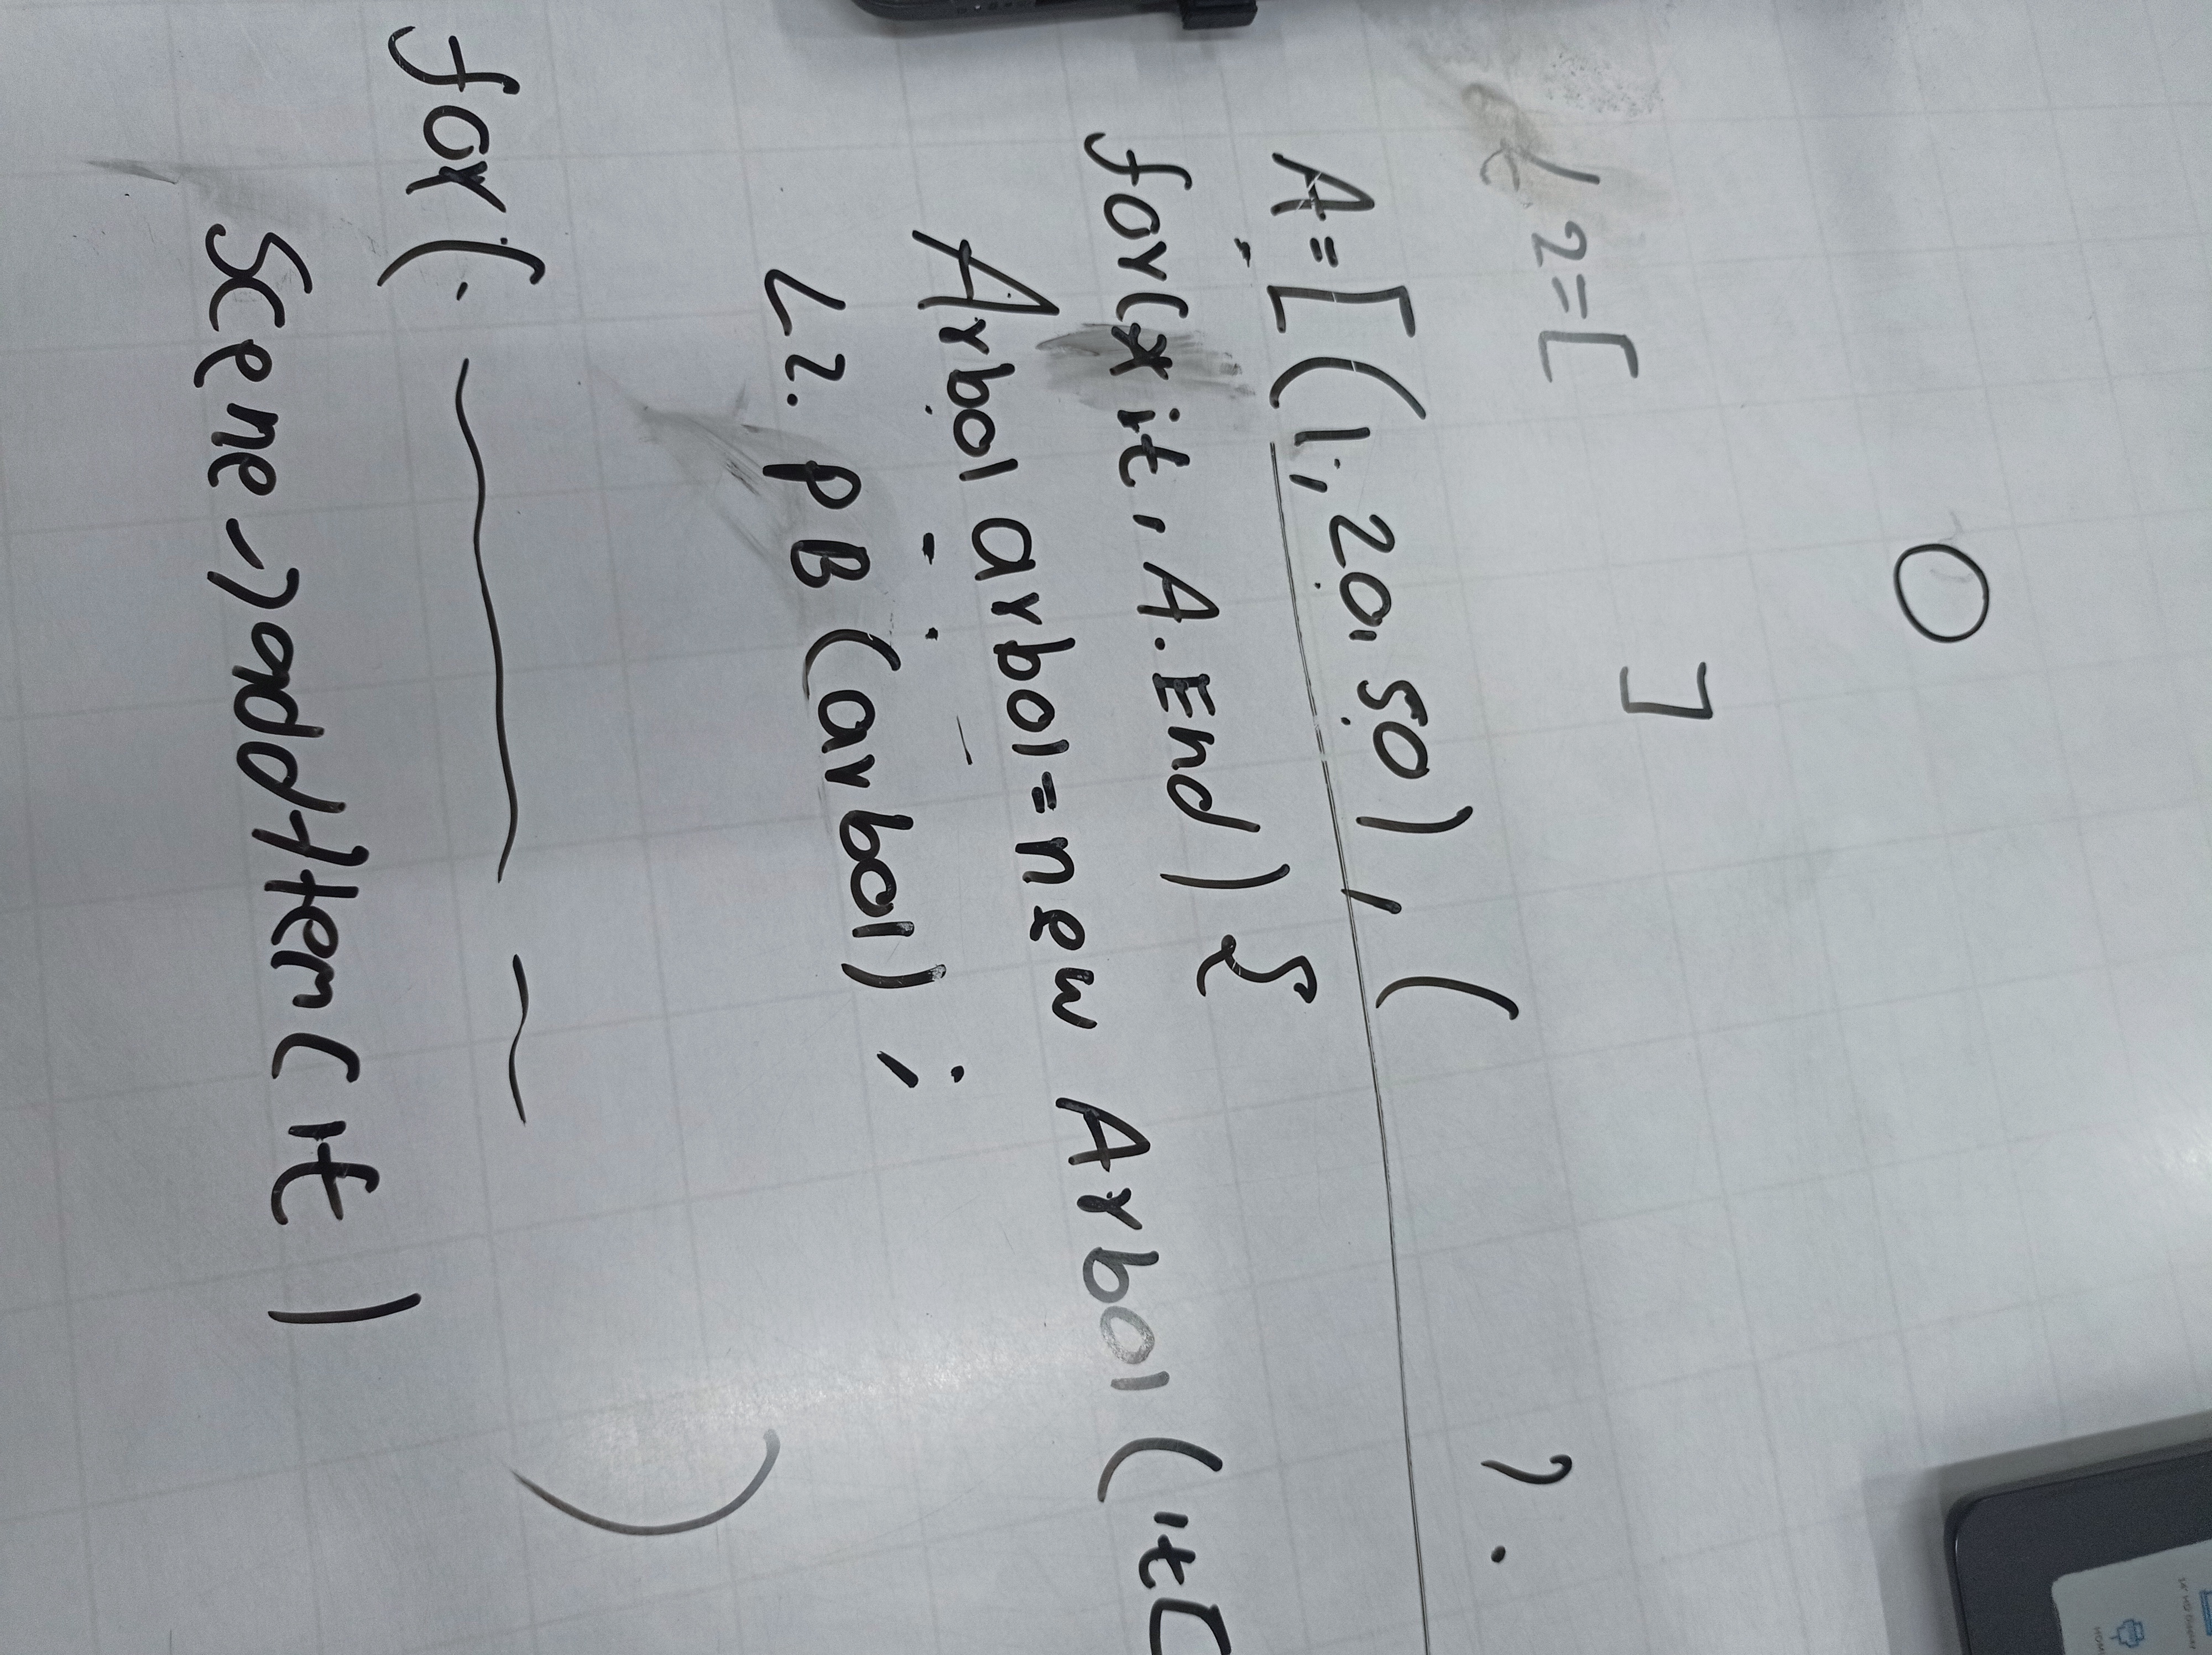 14" HD Display
HDMI
L2=[ ]
A=[(1,20,50),( ).
for(*it,A.End){
Arbol arbol=new Arbol(it[
L2.PB(arbol);
for( )
Scene->addItem(it)